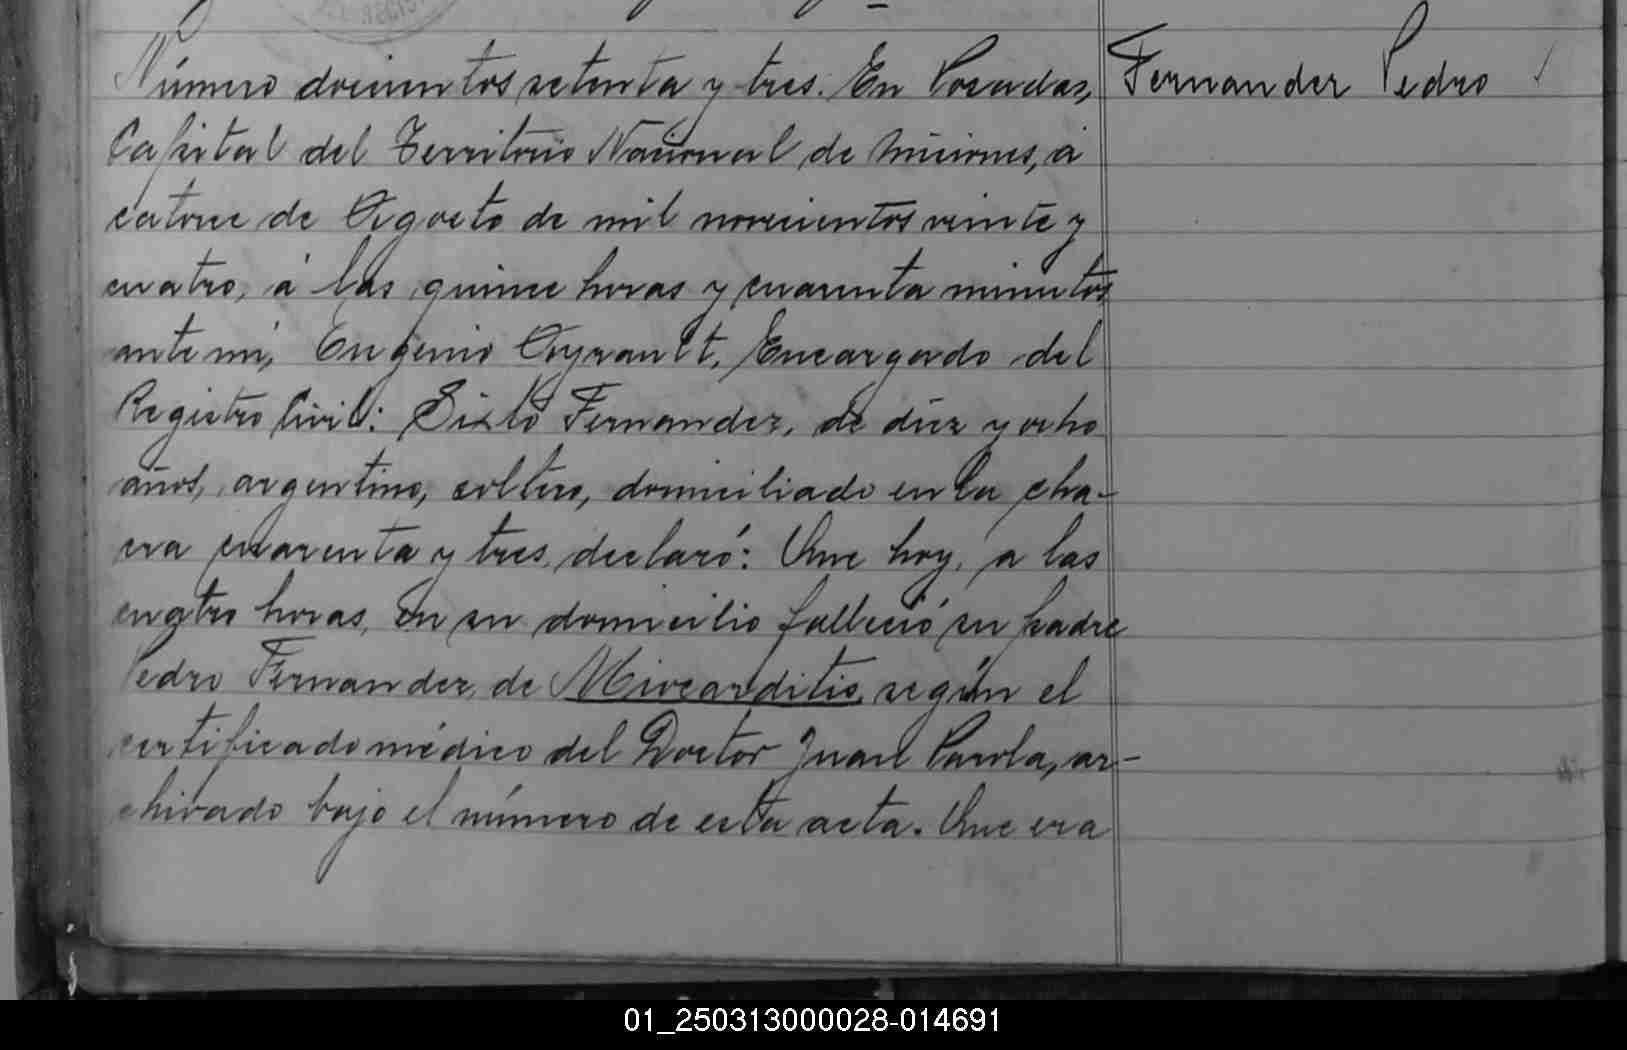 Número docientos setenta y tres. En Posadas,
Fernandez Pedro
Capital del Territorio Nacional de Misiones, á
catorce de Agosto de mil novecientos veinte y
cuatro, á las quince horas y cuarenta minutos
ante mi, Eugenio Ayrault, Encargado del
Registro Civil: Sixto Fernandez, de diez y ocho
años, argentino, soltero, domiciliado en la cha-
cra cuarenta y tres, declaró: Que hoy, a las
cuatro horas, en su domicilio falleció su padre
Pedro Fernandez, de Miocarditis, según el
certificado médico del Doctor Juan Parola, ar-
chivado bajo el número de esta acta. Que era
01_250313000028-014691